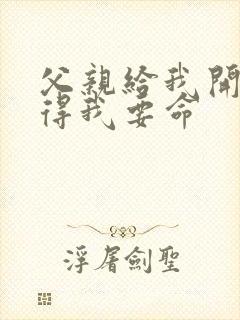 父親給我開
得我要命
浮屠劍聖